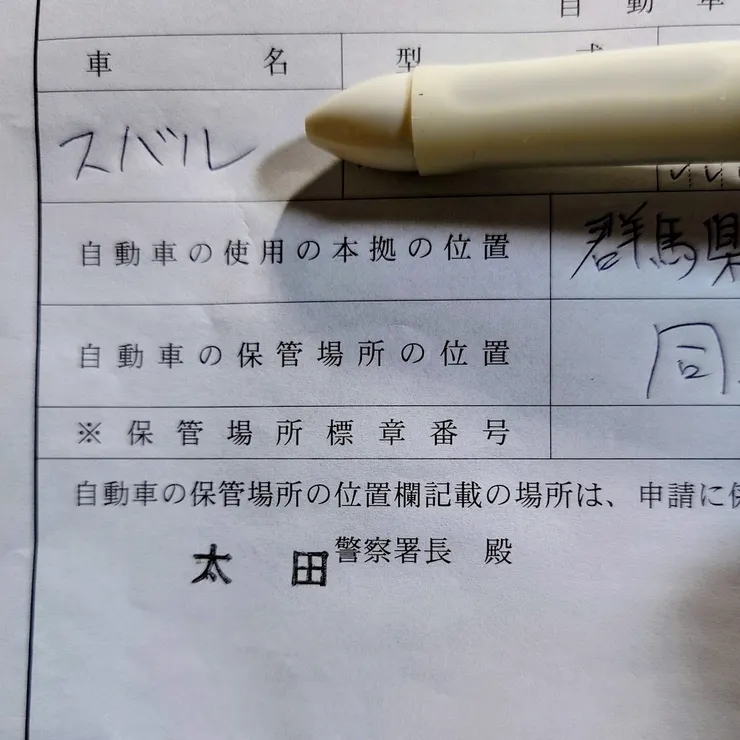 自動車
車名 型式
スバル
自動車の使用の本拠の位置 群馬県
自動車の保管場所の位置 同
※保管場所標章番号
自動車の保管場所の位置欄記載の場所は、申請に
太田警察署長 殿